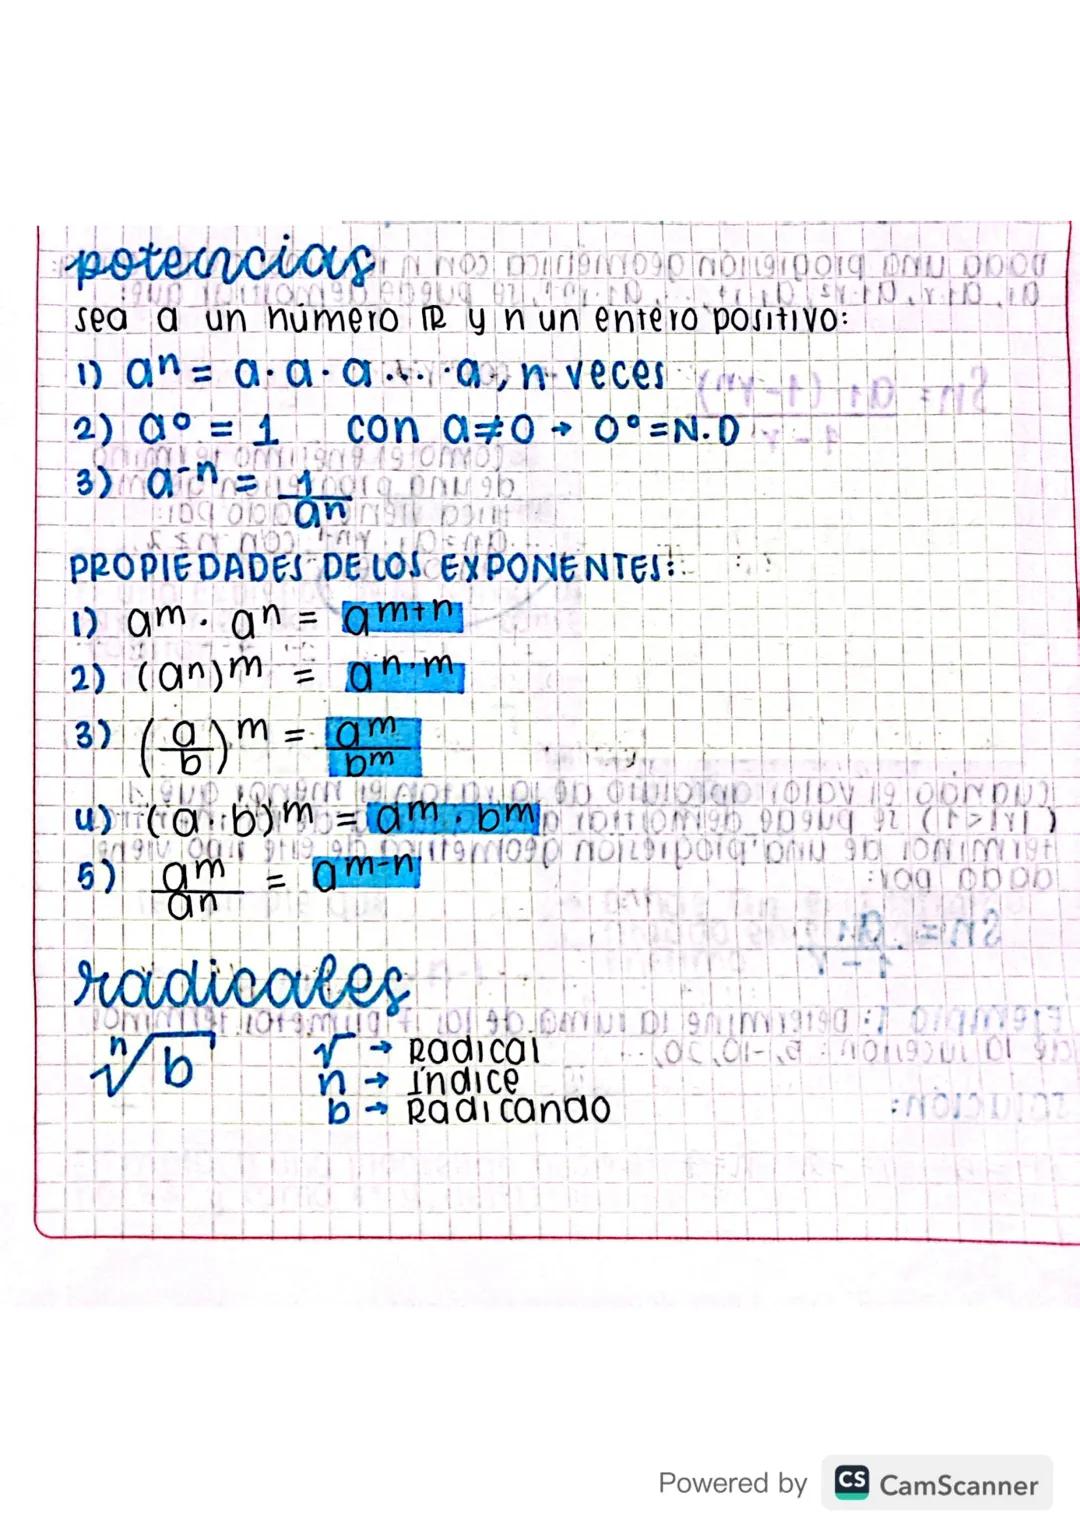 potencias
sea a un número ℝ y n un entero positivo:
1) aⁿ = a · a · a ... · a, n veces
2) a⁰ = 1 con a≠0 → 0⁰ = N.D
3) a⁻ⁿ = 1/aⁿ
PROPIEDADES DE LOS EXPONENTES:
1) aᵐ · aⁿ = aᵐ⁺ⁿ
2) (aⁿ)ᵐ = aⁿ·ᵐ
3) (a/b)ᵐ = aᵐ/bᵐ
4) (a·b)ᵐ = aᵐ · bᵐ
5) aᵐ/aⁿ = aᵐ⁻ⁿ
radicales
ⁿ√b
√ → Radical
n → Índice
b → Radicando
Powered by CS CamScanner